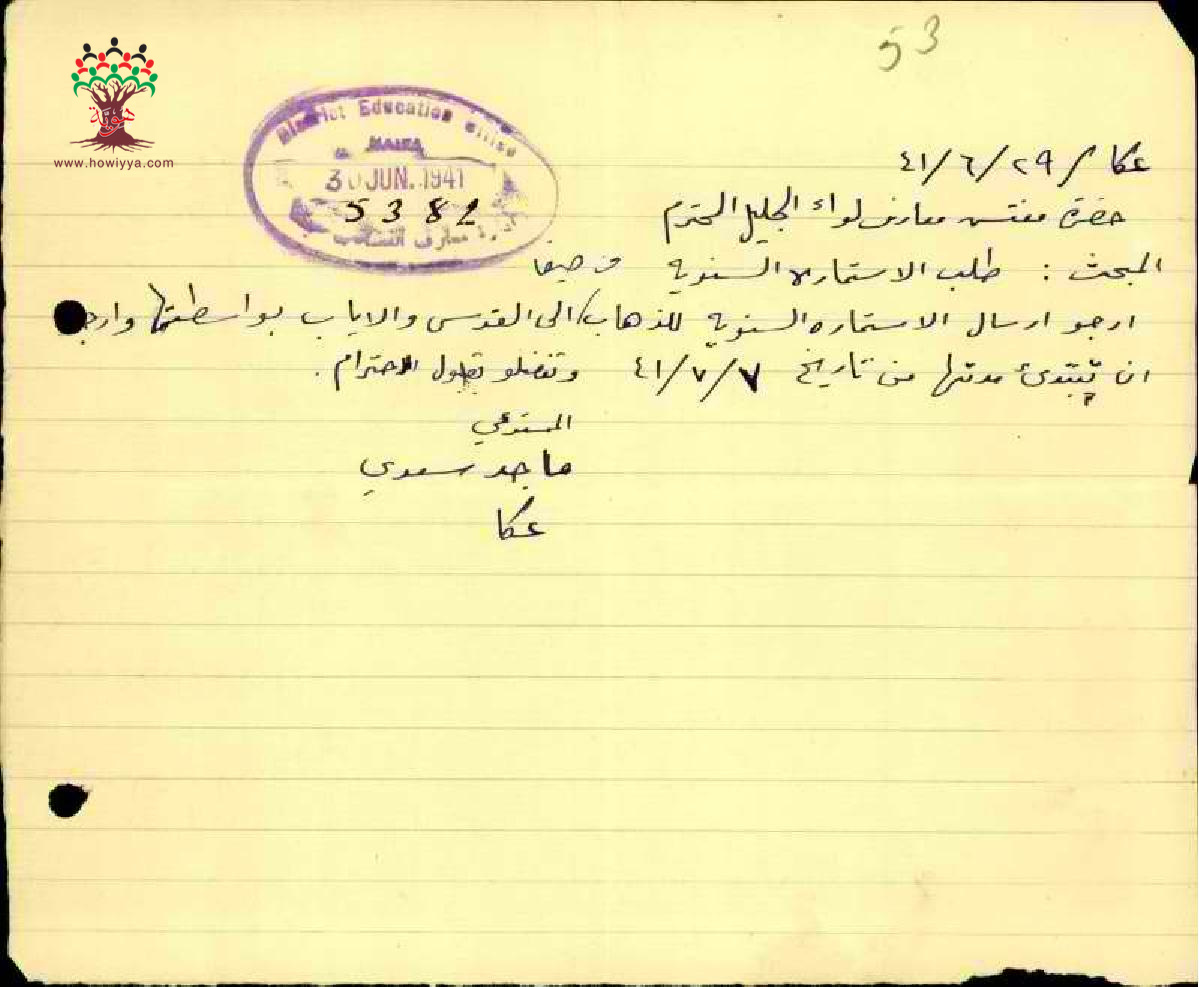 53
www.howiyya.com
District Education Office
HAIFA
30 JUN. 1941
5382
عكا / ٢٩/٦/٤١
حضرة مفتش معارف لواء الجليل المحترم
المبحث : طلب الاستماره السنويه في حيفا
ارجو ارسال الاستماره السنويه للذهاب الى القدس والاياب بواسطتها وارجو
ان تبتدئ مدتها من تاريخ ٧/٧/٤١ وتفضلو بقبول الاحترام .
المستدعي
ماجد سعدي
عكا